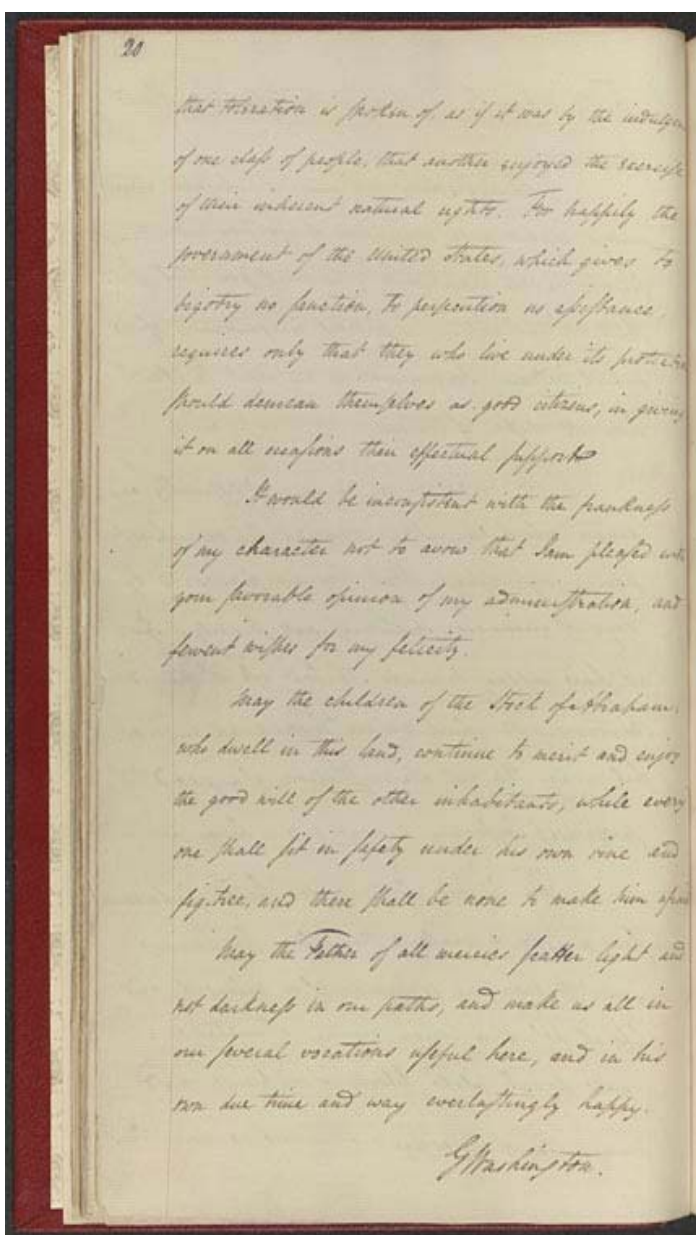 20
that toleration is spoken of, as if it was by the indulgen
of one class of people, that another enjoyed the exercise
of their inherent natural rights. For happily the
government of the United States, which gives to
bigotry no sanction, to persecution no assistance,
requires only that they who live under its protection
should demean themselves as good citizens, in giving
it on all occasions their effectual support.
It would be inconsistent with the frankness
of my character not to avow that I am pleased with
your favorable opinion of my administration, and
fervent wishes for my felicity.
May the children of the Stock of Abraham,
who dwell in this land, continue to merit and enjoy
the good will of the other inhabitants, while every
one shall sit in safety under his own vine and
fig-tree, and there shall be none to make him afraid
May the Father of all mercies scatter light and
not darkness in our paths, and make us all in
our several vocations useful here, and in his
own due time and way everlastingly happy.
G Washington.